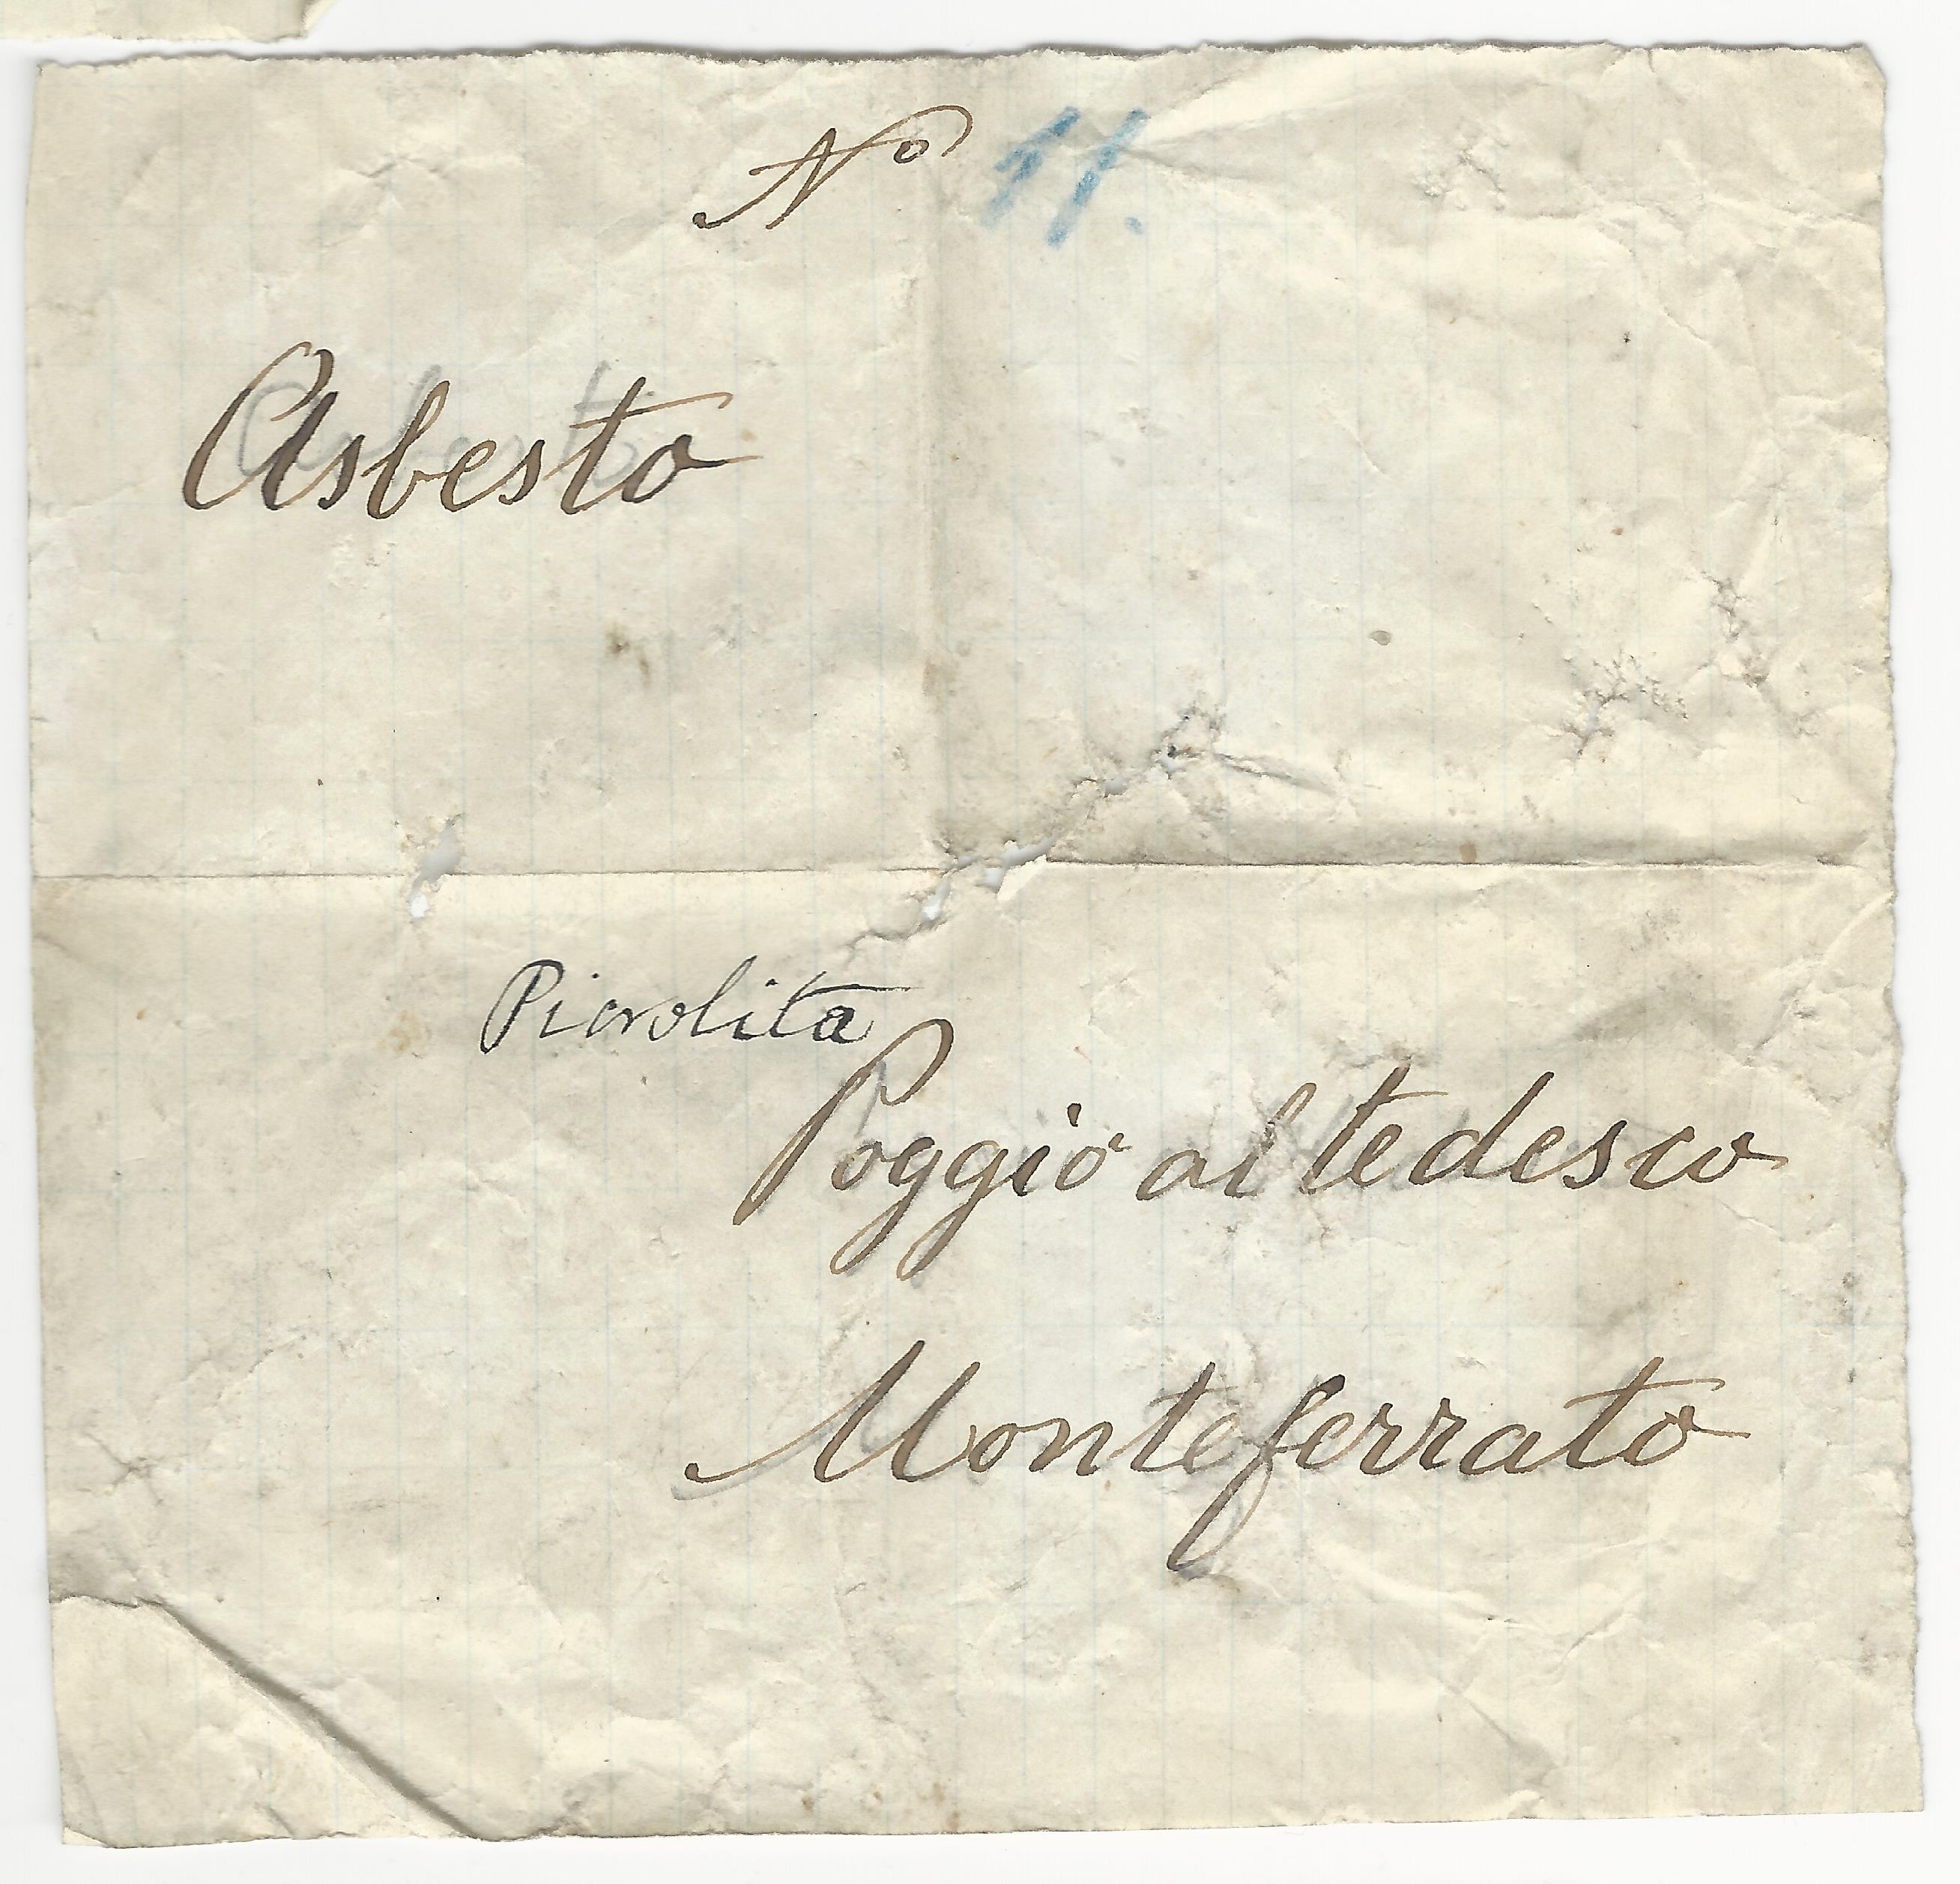 Nº 11.
Asbesto
Picrolita
Poggio al tedesco
Monteferrato